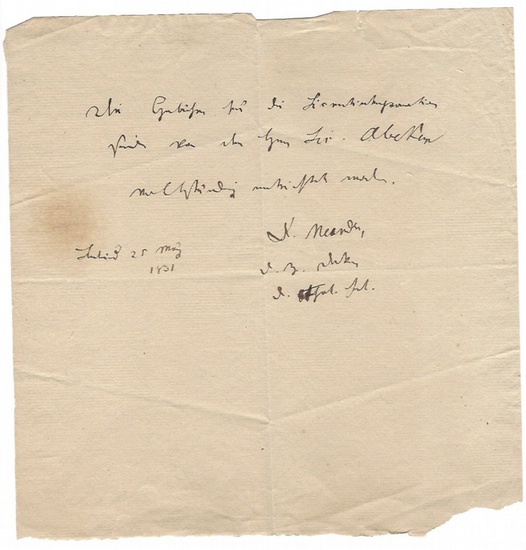 Die Gebühren für die Licentiatspromotion
sind von dem Herrn Lic. Abeken
vollständig entrichtet worden.
D. Neander,
d. Z. Dekan
d. theol. Fak.
25 May
1831